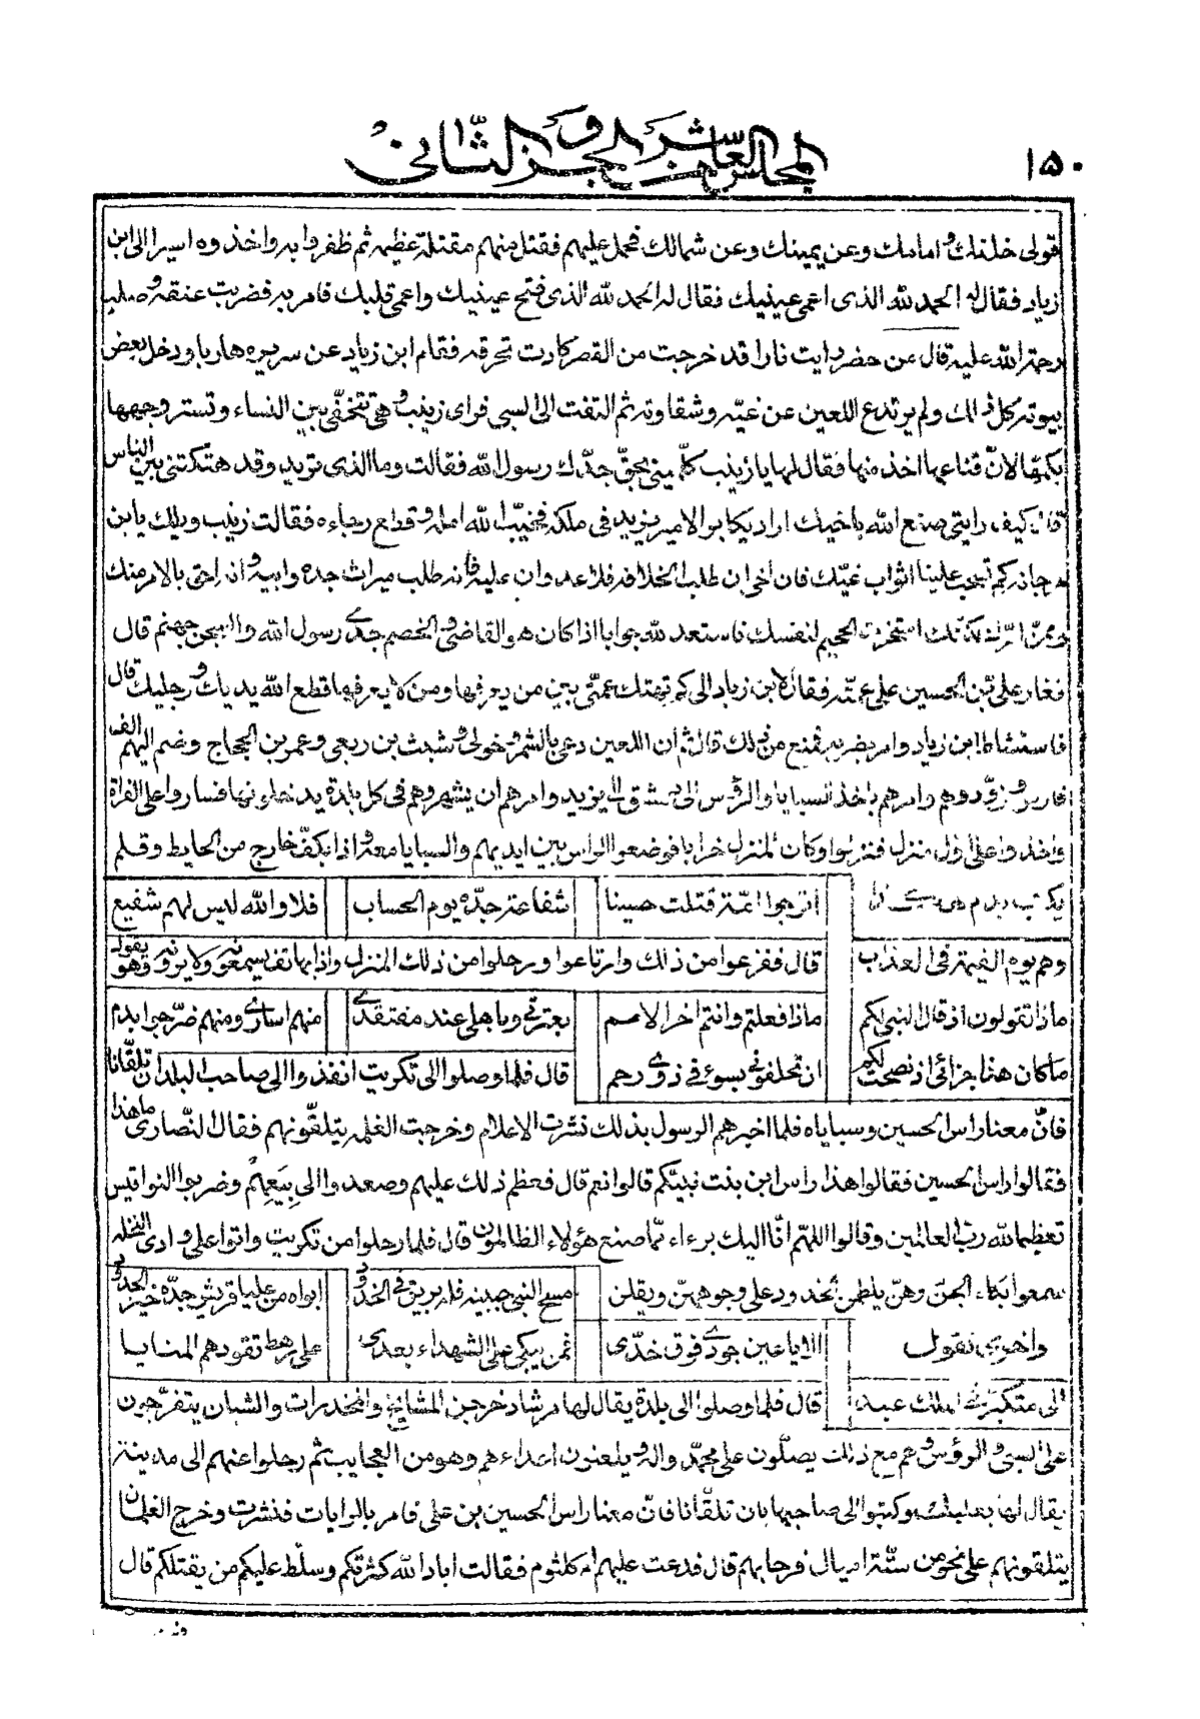 ١٥٠
المجلس العاشر من الجزء الثاني
قولى خلفك وامامك وعن يمينك وعن شمالك فحمل عليهم فقتل منهم مقتلة عظيمة ثم ظفروا به واخذوه اسيرا الى ابن
زياد فقال له الحمد لله الذى اعمى عينيك فقال له الحمد لله الذى فتح عينيك واعمى قلبك فامر به فضربت عنقه وصلب
رحمة الله عليه قال من حضر رايت نارا قد خرجت من القصر كادت تحرقه فقام ابن زياد عن سريره هاربا ودخل بعض
بيوته كل ذلك ولم يرتدع اللعين عن غيّه وشقاوته ثم التفت الى السبي فراى زينب وهى تتخفّى بين النساء وتستر وجهها
بكمّها لانّ قناعها اخذ منها فقال لها يا زينب كلّمينى بحقّ جدّك رسول الله فقالت وما الذى تريد وقد هتكتنى بين الناس
قال كيف رايتى صنع الله باخيك اراد يكابر الامير يزيد فى ملكه فخيّب الله امله وقطع رجاءه فقالت زينب ويلك يابن
مرجانه كم تسحب علينا اثواب غيّك فان اخى ان طلب الخلافة فلا عدوان عليه فانه طلب ميراث جده وابيه وانه احق بالامر منك
وممن امّرك لكنّك استخرت الجحيم لنفسك فاستعد لله جوابا اذا كان هو القاضى والخصم جدى رسول الله والسجن جهنم قال
فغار على بن الحسين على عمّته فقال لابن زياد الى كم تهتك عمتى بين من يعرفها ومن لا يعرفها قطع الله يديك ورجليك قال
فاستشاط ابن زياد وامر بضربه فمنع من ذلك قال ثم ان اللعين دعى بالشمر وخولى وشبث بن ربعى وعمر بن الحجاج وضم اليهم الف
فارس وزوّدوهم وامرهم باخذ السبايا والرؤس الى دمشق الى يزيد وامرهم ان يشهروهم فى كل بلدة يدخلونها فساروا على الفراة
واخذوا على اول منزل فنزلوا وكان المنزل خرابا فوضعوا الراس بين ايديهم والسبايا معه واذا بكفّ خارج من الحايط وقلم
يكتب بدم
اترجوا امّة قتلت حسينا
شفاعة جدّه يوم الحساب
فلا والله ليس لهم شفيع
وهم يوم القيمة فى العذاب
قال ففزعوا من ذلك وارتاعوا ورحلوا من ذلك المنزل واذا بهاتف يسمعونه ولا يرونه وهو يقول
ماذا تقولون اذ قال النبى لكم
ماذا فعلتم وانتم اخر الامم
بعترتى وباهلى عند مفتقدى
منهم اسارى ومنهم ضرّجوا بدم
ما كان هذا جزائى اذ نصحت لكم
ان تخلفونى بسوء فى ذوى رحم
قال فلما وصلوا الى تكريت انفذوا الى صاحب البلدان تلقّانا
فانّ معنا راس الحسين وسباياه فلما اخبرهم الرسول بذلك نشرت الاعلام وخرجت الغلمه يتلقّونهم فقال النّصارى ما هذا
فقالوا راس الحسين فقالوا هذا راس ابن بنت نبيّكم قالوا نعم قال فعظم ذلك عليهم وصعدوا الى بِيَعِهِم وضربوا النواقيس
تعظيما لله رب العالمين وقالوا اللهم انّا اليك برءاء ممّا صنع هؤلاء الظالمون قال فلما رحلوا من تكريت واتوا على وادى النخله
سمعوا بكاء الجن وهنّ يلطمن الخدود على وجوههنّ ويقلن
مسح النبى جبينه فله بريق فى الخدود
ابواه من عليا قريش جدّه خير الجدود
واخرى تقول
الا يا عين جودى فوق خدّى
فمن يبكى على الشهداء بعدى
على رهط تقودهم المنايا
الى متكبّر فى الملك عبد
قال فلما وصلوا الى بلدة يقال لها مرشاد خرجن المشايخ والمخدرات والشبان يتفرّجون
على السبى والرؤس وهم مع ذلك يصلّون على محمّد واله ويلعنون اعداءهم وهو من العجايب ثم رحلوا عنهم الى مدينة
يقال لها بعلبك وكتبوا الى صاحبها بان تلقّانا فانّ معنا راس الحسين بن على فامر بالرايات فنشرت وخرج الغلمان
يتلقونهم على نحو من ستّة اميال فرحا بهم قال فدعت عليهم ام كلثوم فقالت اباد الله كثرتكم وسلّط عليكم من يقتلكم قال